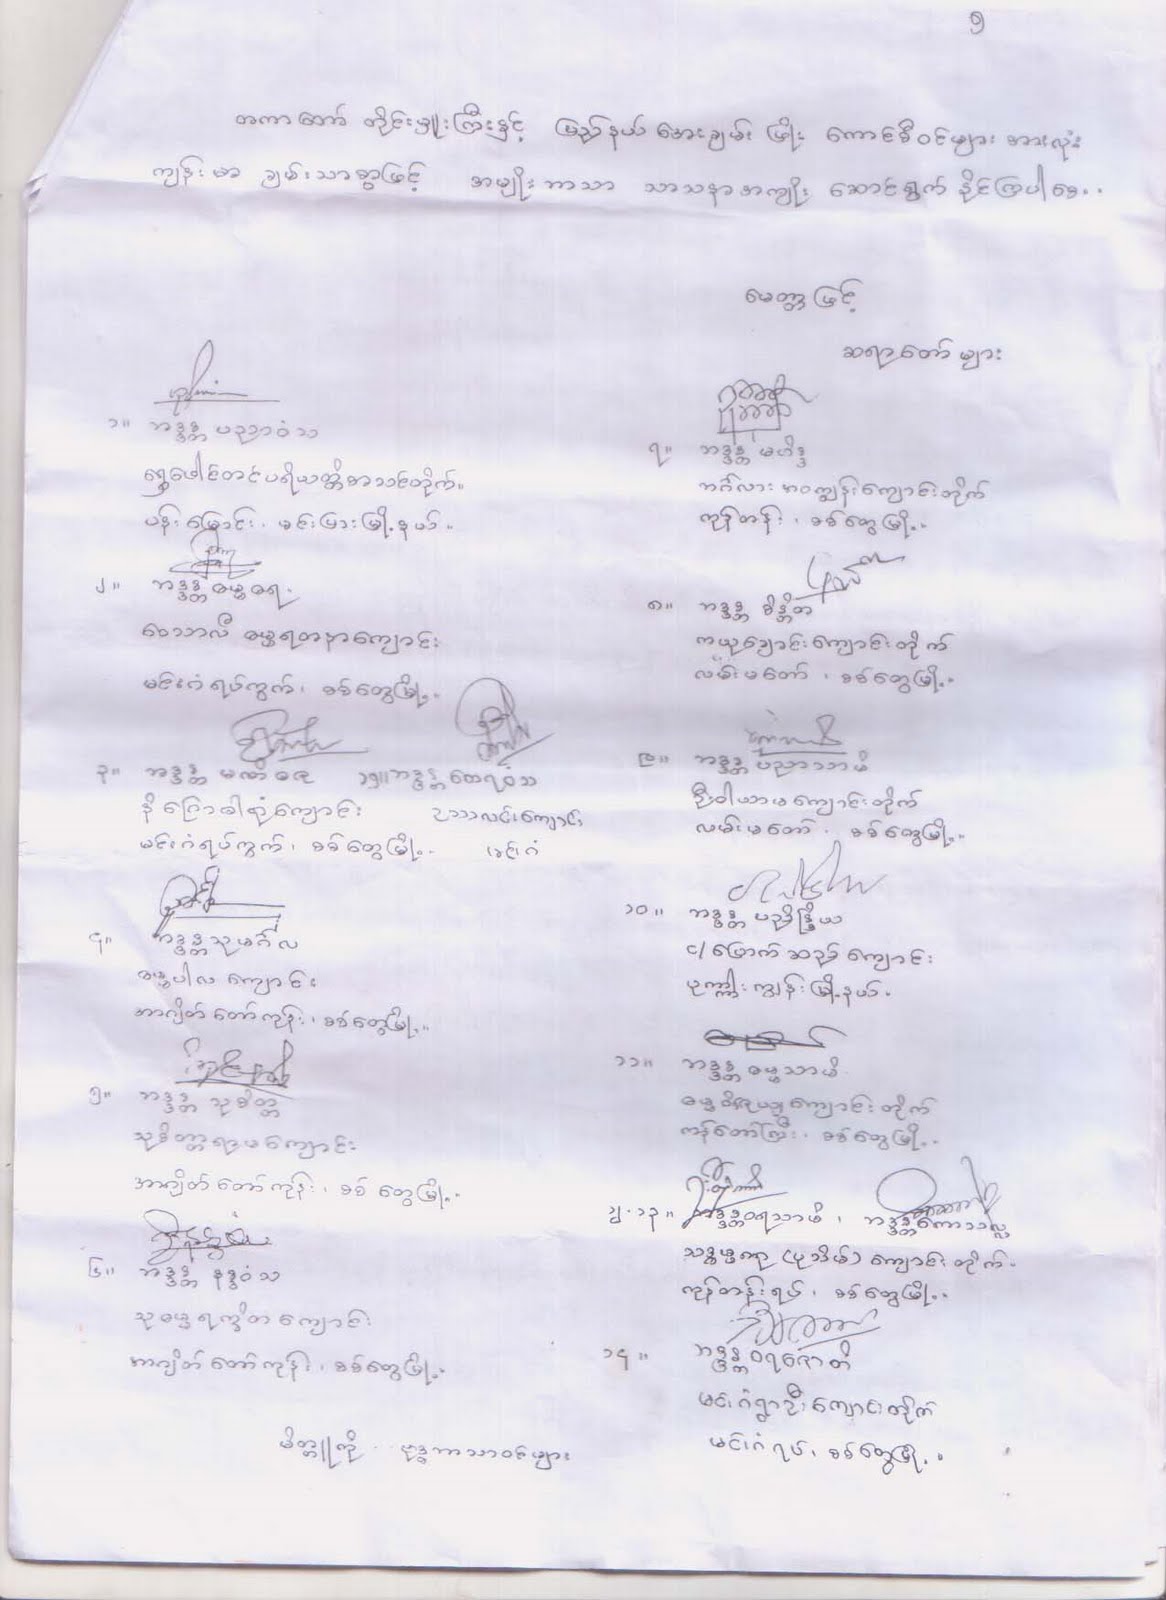 ၅
တကာတော် တိုင်းမှူးကြီးနှင့် ပြည်နယ်အေးချမ်း ဖြိုး ကောင်စီဝင်များ အားလုံး
ကျန်းမာ ချမ်းသာစွာဖြင့် အမျိုးဘာသာ သာသနာအကျိုး ဆောင်ရွက် နိုင်ကြပါစေ..
မေတ္တာဖြင့်
ဆရာတော်များ
၁။ ဘဒ္ဒန္တ ပညာဝံသ
ရွှေဖေါင်တင်ပရိယတ္တိစာသင်တိုက်။
ပန်းမြောင်း၊ မင်းပြားမြို့နယ်။
၂။ ဘဒ္ဒန္တ ဓမ္မဓရ
ဝေသာလီ ဓမ္မရတနာကျောင်း
မင်းဂံရပ်ကွက်၊ စစ်တွေမြို့.
၃။ ဘဒ္ဒန္တ မဏိဓဇ ၁၅။ဘဒ္ဒန္တထေရဝံသ
နိကြောဓါရုံကျောင်း ဥသသလင်းကျောင်း
မင်းဂံရပ်ကွက်၊ စစ်တွေမြို့. မင်းဂံ
၄။ ဘဒ္ဒန္တသုမင်္ဂလ
ဓမ္မပါလ ကျောင်း
အာဂျိတ်တော်ကုန်း၊ စစ်တွေမြို့.။
၅။ ဘဒ္ဒန္တ သုစိတ္တ
သုစိတ္တာရာမကျောင်း
အာဂျိတ်တော်ကုန်း၊ စစ်တွေမြို့..
၆။ ဘဒ္ဒန္တ နန္ဒဝံသ
သုဓမ္မရက္ခိတကျောင်း
အာဂျိတ်တော်ကုန်း၊ စစ်တွေမြို့..
မိတ္တူကို .. ဗုဒ္ဓဘာသာဝင်များ
၇။ ဘဒ္ဒန္တ မဟိန္ဒ
ဘင်္ဂလားမာဝကျွန်းကျောင်းတိုက်
ကုန်တန်း၊ စစ်တွေမြို့.
၈။ ဘဒ္ဒန္တ စိန္တိတ
ကယုချောင်းကျောင်းတိုက်
လမ်းမတော်၊ စစ်တွေမြို့.
၉။ ဘဒ္ဒန္တ ပညာသာမိ
ဦးဝါယာမကျောင်းတိုက်
လမ်းမတော်၊ စစ်တွေမြို့..
၁၀။ ဘဒ္ဒန္တ ပညိန္ဒြိယ
င/မြောက်ဆည်ကျောင်း
ပုဏ္ဏါးကျွန်းမြို့နယ်.
၁၁။ ဘဒ္ဒန္တ ဓမ္မသာမိ
ဓမ္မဝိဇယျကျောင်းတိုက်
ကန်တော်ကြီး၊ စစ်တွေမြို့..
၁၂.၁၃။ ဘဒ္ဒန္တဝရသာမိ၊ ဘဒ္ဒန္တကောသလ္လ
သဒ္ဓမ္မာရာမ ကျောင်းတိုက်.
ကုန်တန်းရပ်၊ စစ်တွေမြို့..
၁၄။ ဘဒ္ဒန္တဝရဇောတိ
မင်းဂံရွာဦးကျောင်းတိုက်
မင်းဂံရပ်၊ စစ်တွေမြို့..